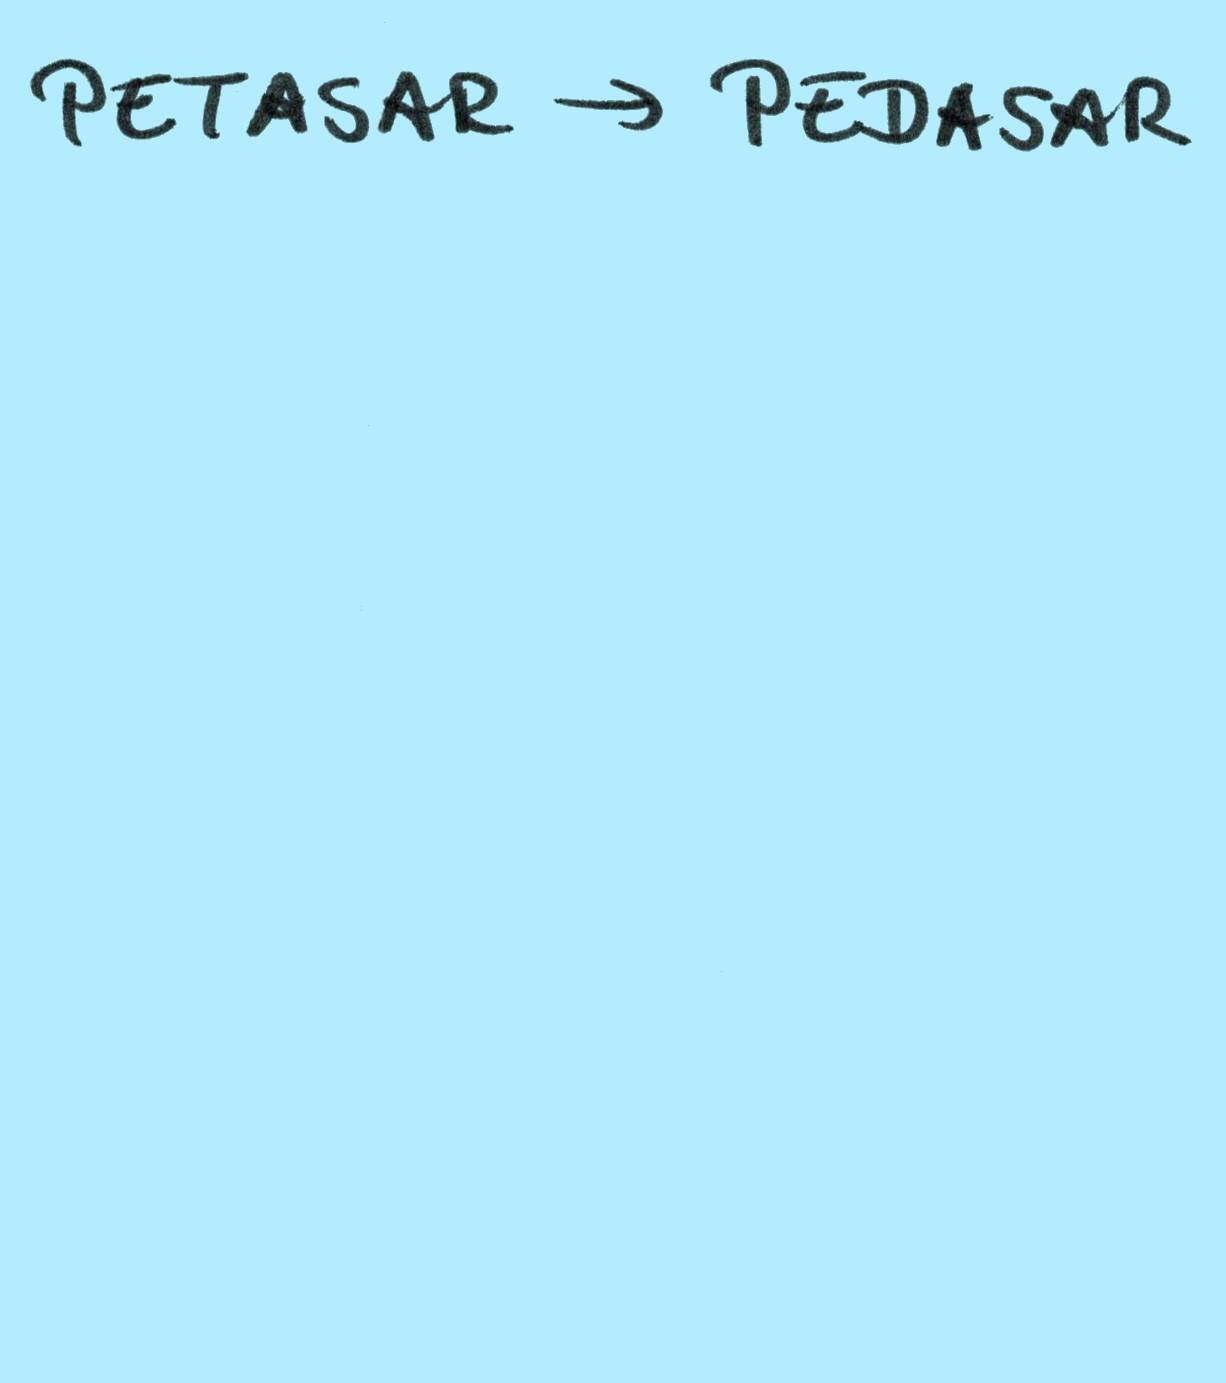 PETASAR → PEDASAR